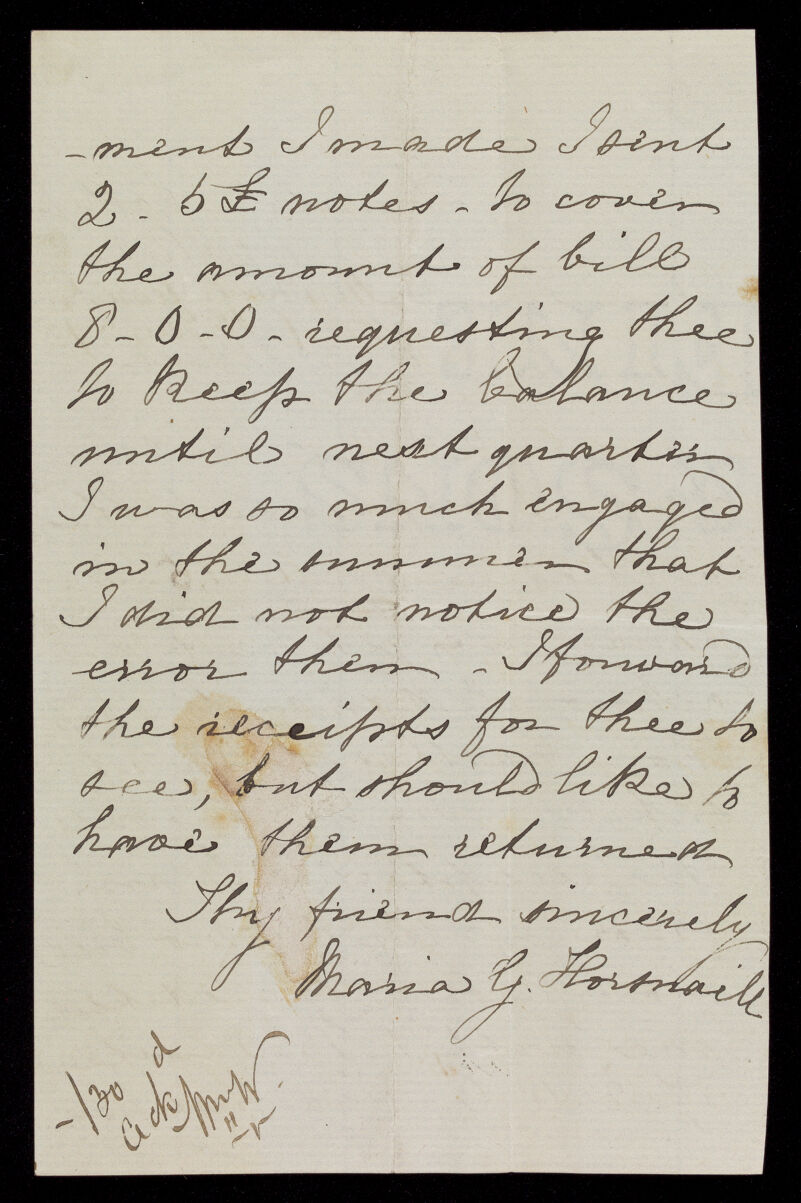 -ment I made I sent
2 - 5£ notes - to cover
the amount of bill
8 - 0 - 0 - requesting thee
to keep the balance
until next quarter
I was so much engaged
in the summer that
I did not notice the
error then - I forward
the receipts for thee to
see, but should like to
have them returned
Thy friend sincerely
Maria G. Horsnaill
-/30
ackd